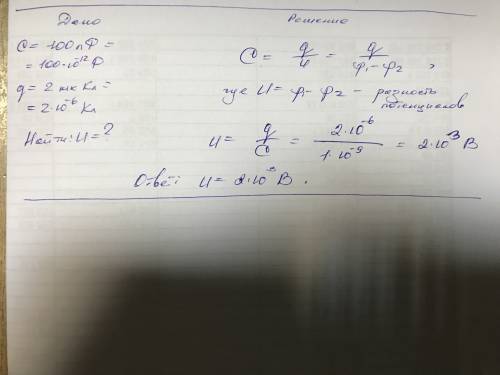 Дано
C = 100 пФ =
= 100·10⁻¹² Ф
q = 2 мкКл =
= 2·10⁻⁶ Кл
Найти: U = ?
Решение
C = q/U = q/φ₁-φ₂ ,
где U = φ₁ - φ₂ - разность
потенциалов
U = q/C = 2·10⁻⁶/1·10⁻⁹ = 2·10⁻³ В
Ответ: U = 2·10⁻³ В .